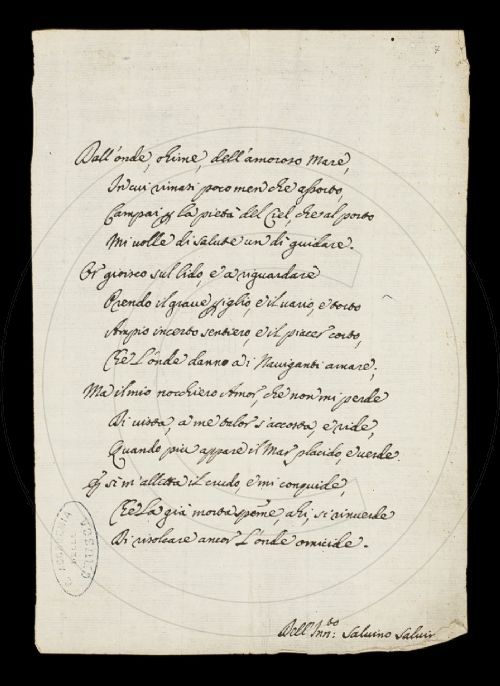 Dall'onde, ohime, dell'amoroso Mare,
In cui rimasi poco men che assorto,
Campai p la pietà del Ciel, che al porto
Mi volle di salute un di guidare.
Or gioisco sul lido, e a riguardare
Prendo il grave periglio, e il vario, e torto
Ampio incerto sentiero, e il piacer corto,
Che L'onde danno a i Naviganti amare;
Ma il mio nocchiero Amor, che non mi perde
Di vista, a me talor s'accosta, e ride,
Quando piu appare il Mar placido, e verde.
E si m'alletta il crudo, e mi conquide,
Che La già morta speme, ahi, si rinverde
Di risolcare ancor L'onde omicide.
Dell'Inn:to Salvino Salvin